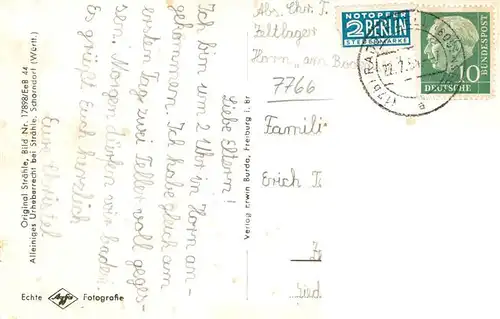 Liebe Eltern!
Ich bin um 2 Uhr in Horn an-
gekommen. Ich habe gleich am
ersten Tage zwei Teller voll geges-
sen. Morgen dürfen wir baden.
Es grüßt Euch herzlich
Eure Christel
Original Strähle, Bild Nr. 17898/EeB 44
Alleiniges Urheberrecht bei Strähle, Schorndorf (Württ.)
Echte Agfa Fotografie
Verlag Erwin Burda, Freiburg i. Br.
Abs. Chr. T
Zeltlager
Horn, am Bod
7766
NOTOPFER
2 BERLIN
STEUERMARKE
10
DEUTSCHE
BUNDESPOST
Famili
Erich T